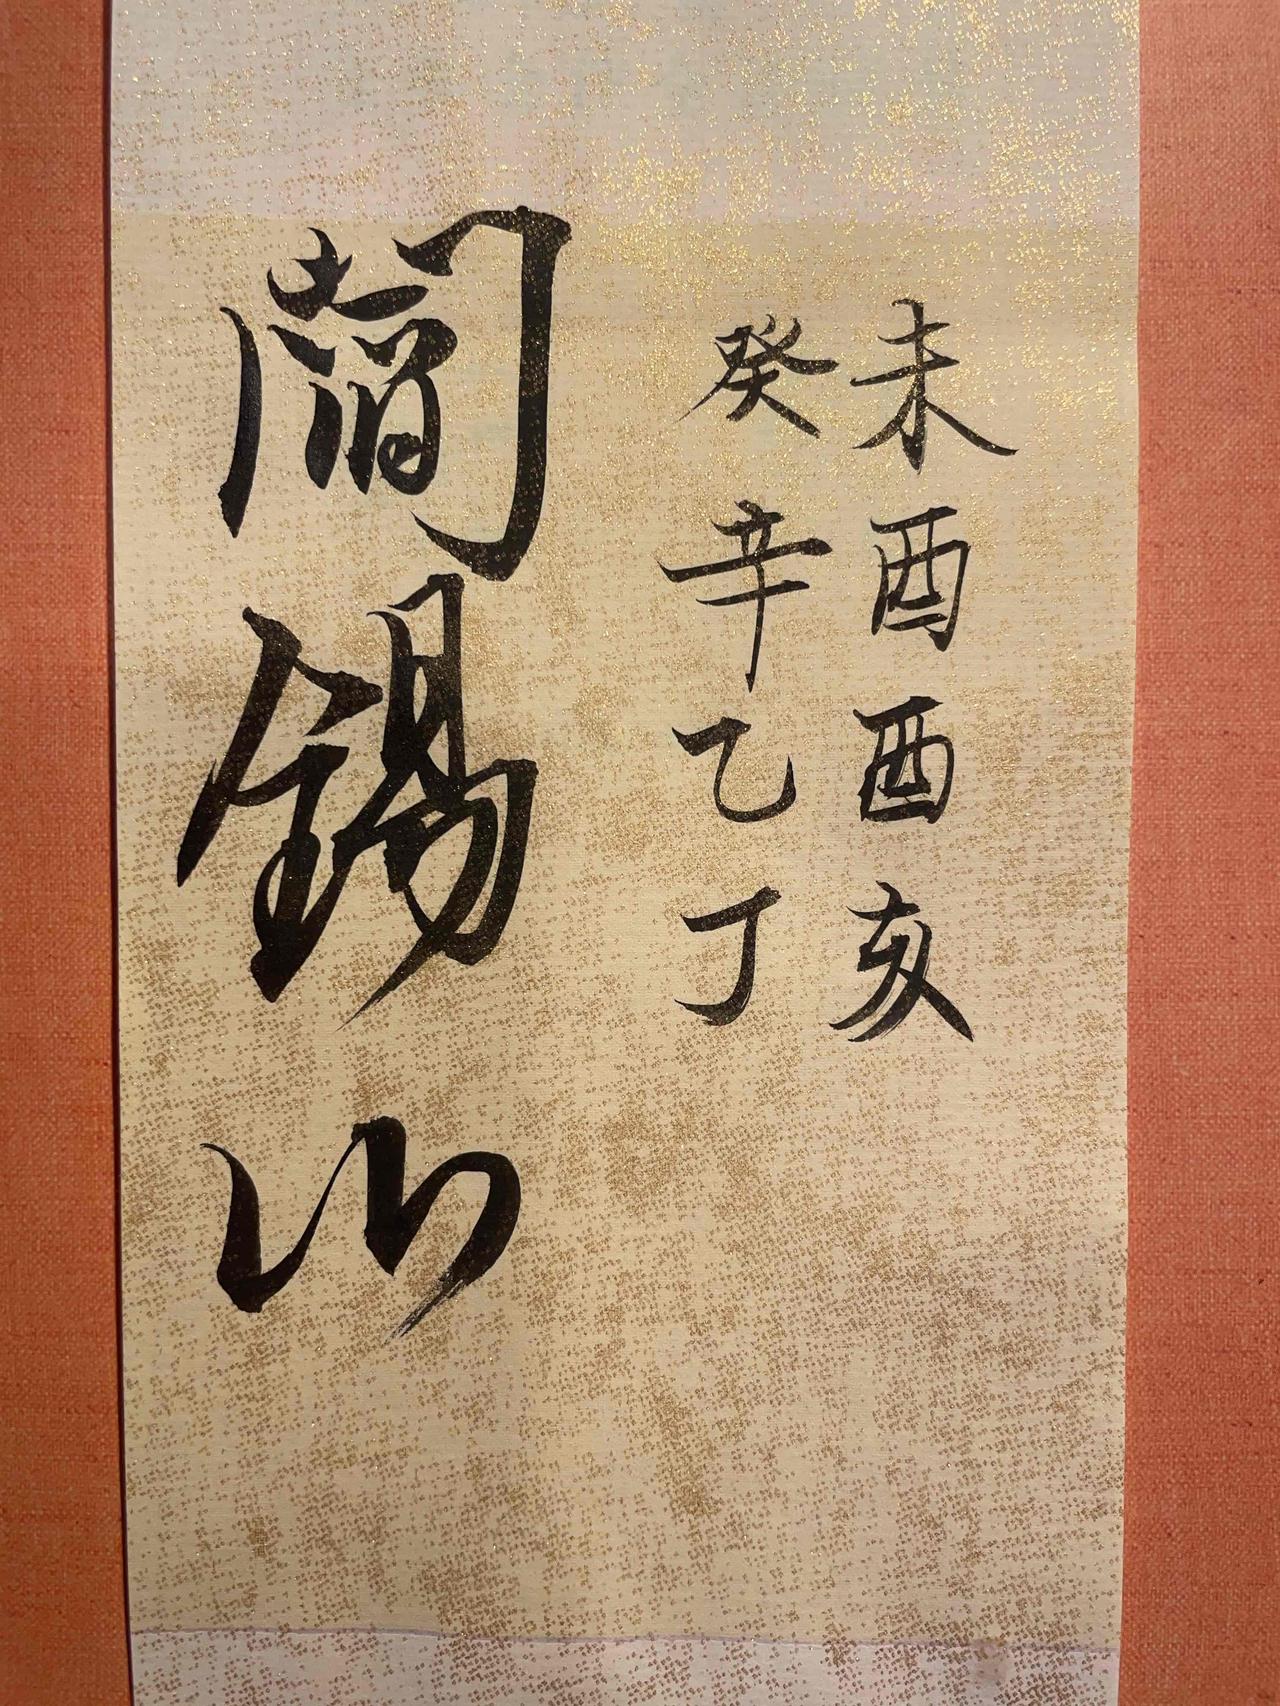 未酉酉亥
癸辛乙丁
閻錫山